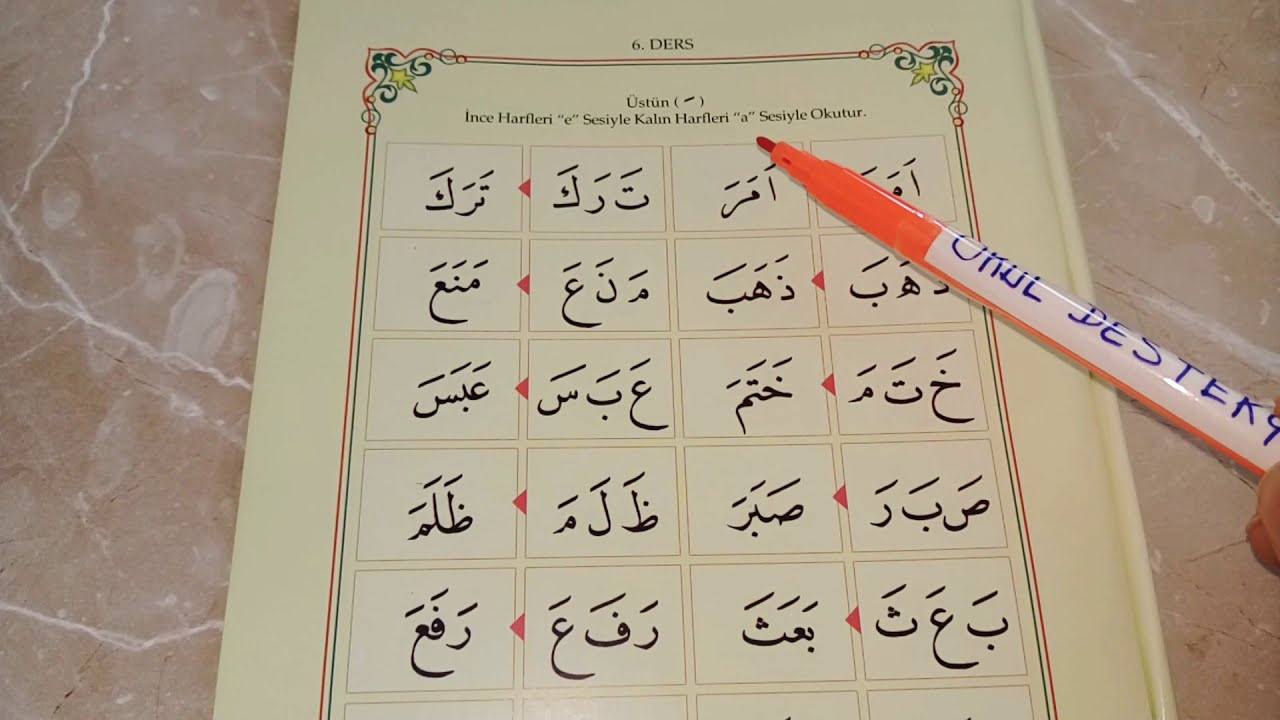 6. DERS
Üstün ( ـَ )
İnce Harfleri “e” Sesiyle Kalın Harfleri “a” Sesiyle Okutur.
اَمَرَ تَ رَ كَ تَرَكَ
ذَ هَ بَ ذَهَبَ مَ نَ عَ مَنَعَ
خَ تَ مَ خَتَمَ عَ بَ سَ عَبَسَ
صَ بَ رَ صَبَرَ ظَ لَ مَ ظَلَمَ
بَ عَ ثَ بَعَثَ رَ فَ عَ رَفَعَ
OKUL